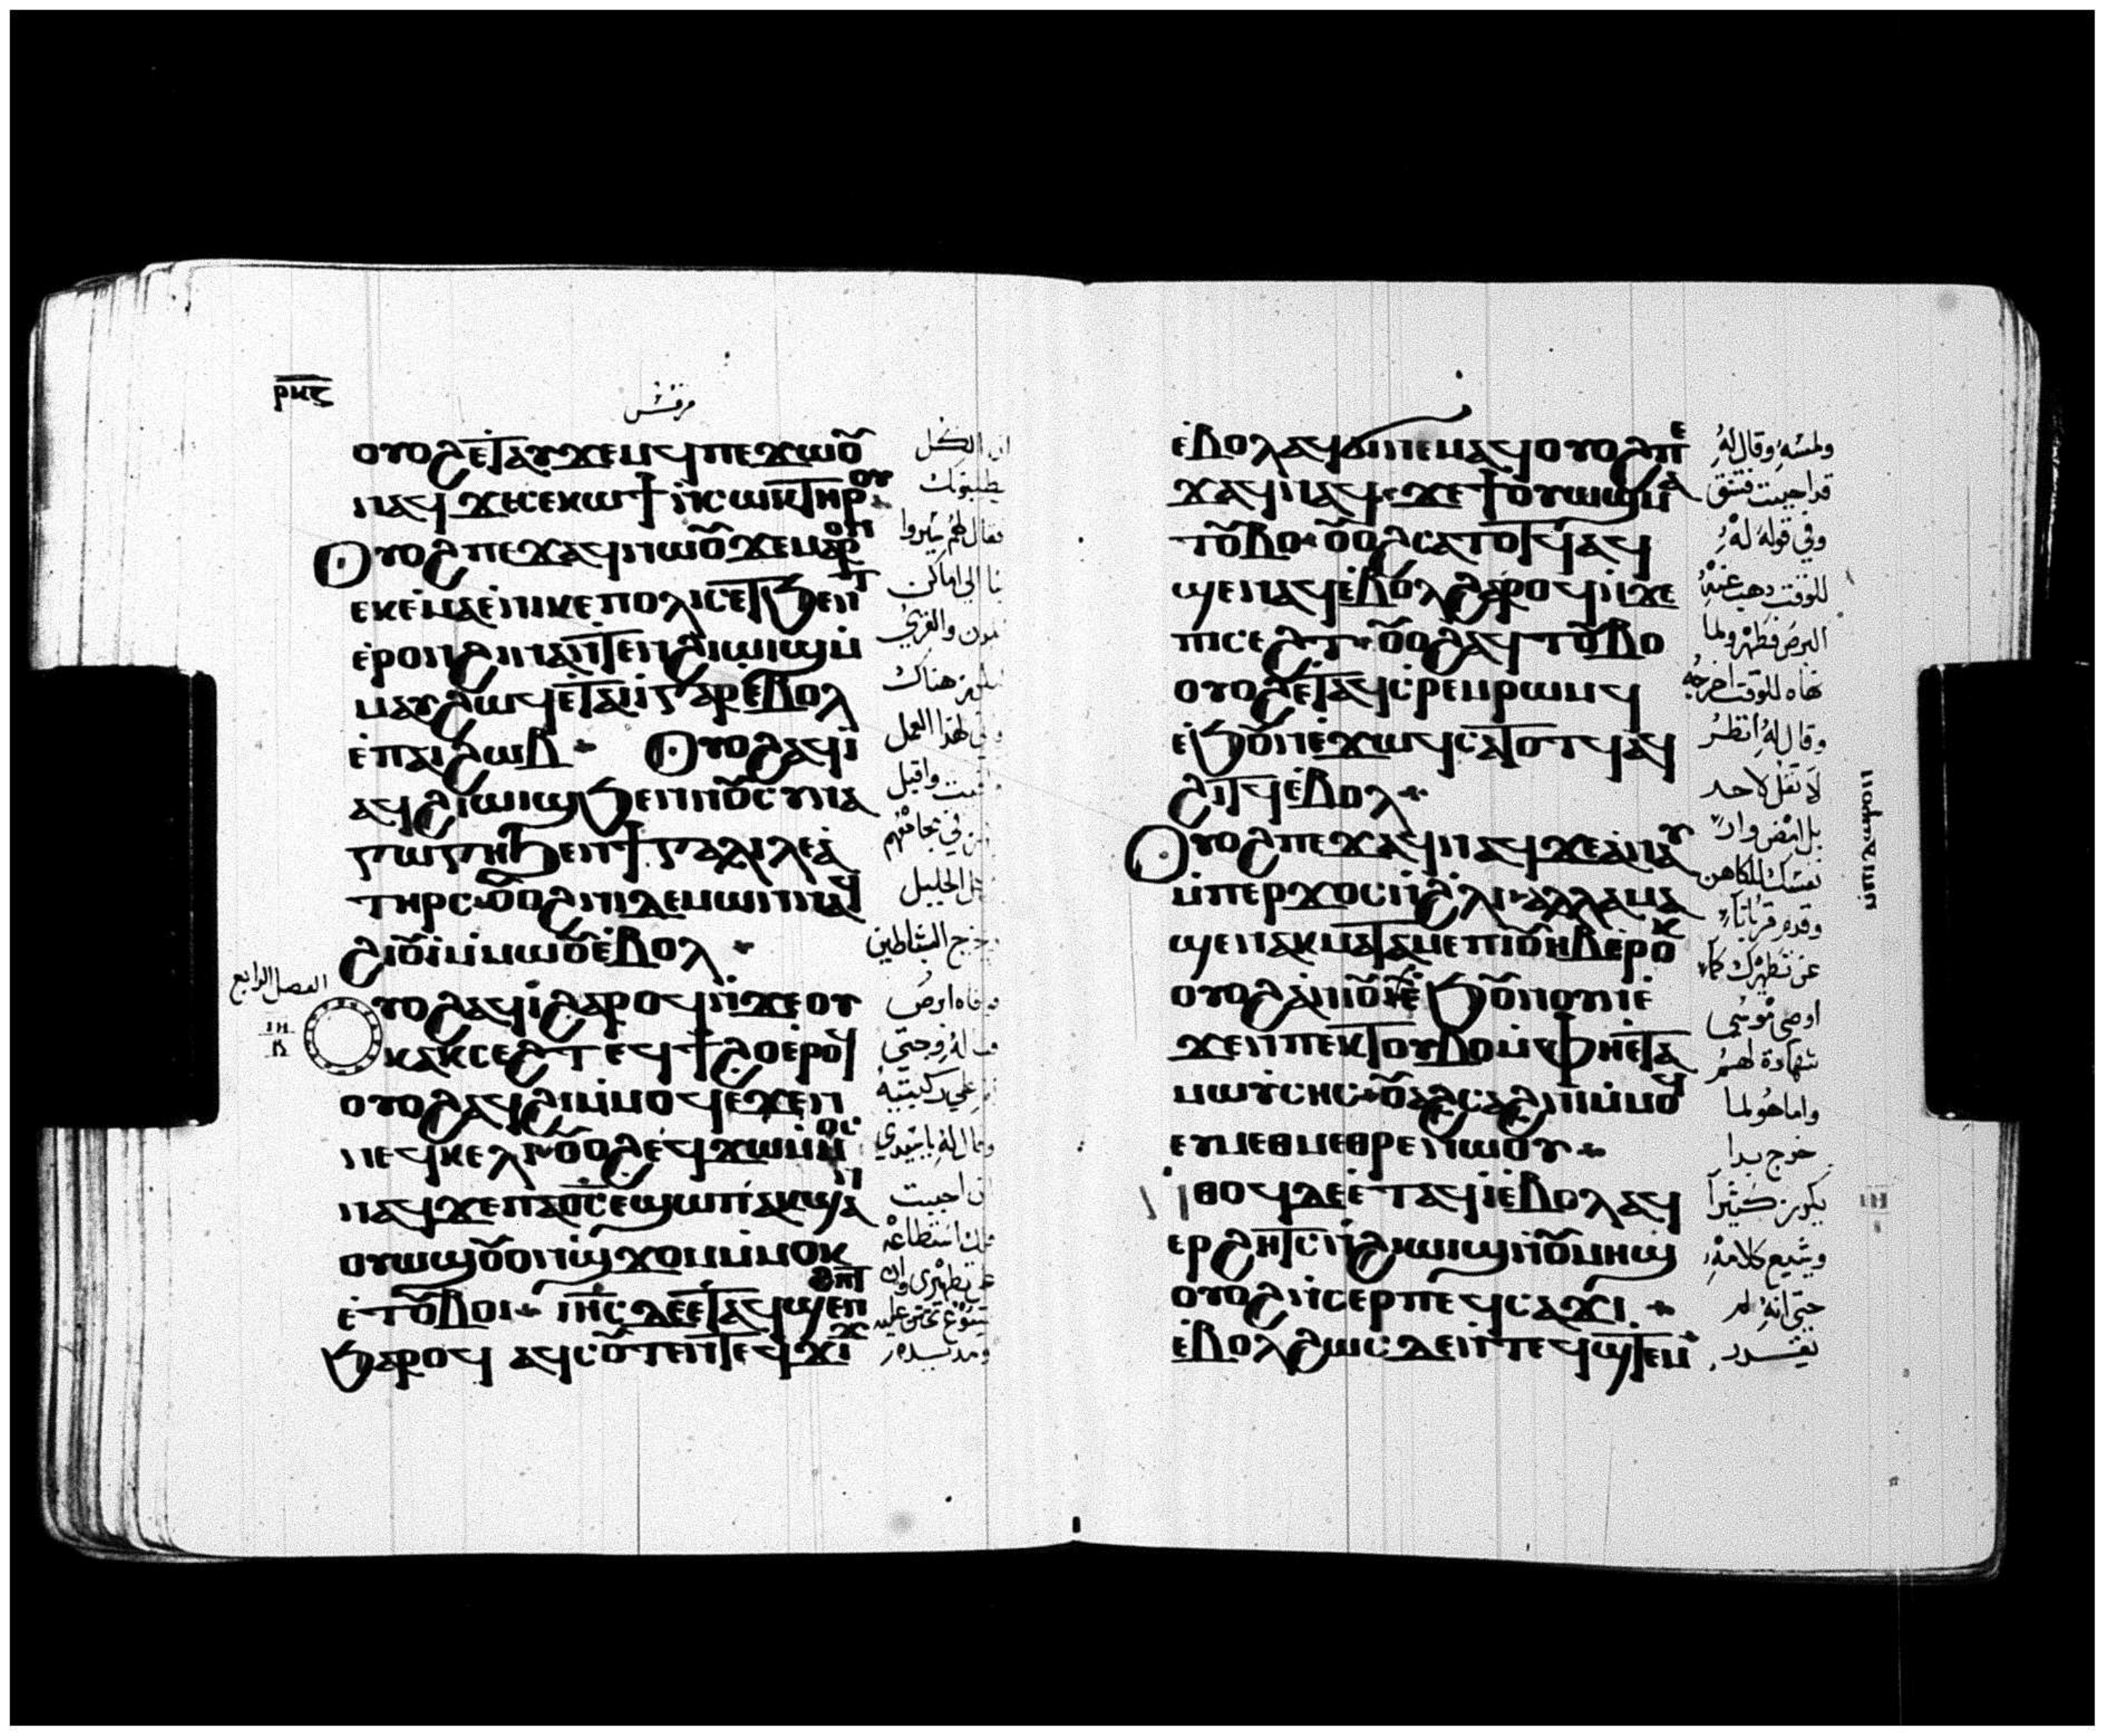 ⲣⲕⲍ
مرقس
ⲟⲩⲟϩⲉ̇ⲧⲁⲩϫⲉⲙϥⲡⲉϫⲱⲟ̄
ⲛⲁϥϫⲉⲥⲉⲕⲱϯⲛ̇ⲥⲱⲕⲧⲏⲣⲟⲩ
ⲟⲩⲟϩⲡⲉϫⲁϥⲛⲱⲟ̄ϫⲉⲙⲁⲣⲟⲛ
ⲉⲕⲉⲙⲁⲉ̇ⲛⲓⲕⲉⲡⲟⲗⲓⲥⲉⲧϧⲉⲛⲧ
ⲉ̇ⲣⲟⲛϩⲓⲛⲁⲛ̇ⲧⲉⲛϩⲓⲱⲓϣⲙ̇
ⲙⲁⲩϩⲱϥⲉ̇ⲧⲁⲓⲓ̇ⲅⲁⲣⲉ̇ⲃⲟⲗ
ⲉ̇ⲡⲁⲓϩⲱⲃ ⲟⲩⲟϩⲁϥⲓ̇
ⲁϥϩⲓⲱⲓϣϧⲉⲛⲛⲟ̄ⲥⲩⲛⲁ
ⲅⲱⲅⲏϧⲉⲛϯⲅⲁⲗⲓⲗⲉⲁ̇
ⲧⲏⲣⲥ ⲟ̄ⲟϩⲛⲓⲇⲉⲙⲱⲛⲛⲁϥ
ϩⲓⲟ̄ⲓⲙ̇ⲙⲱⲟ̄ⲉ̇ⲃⲟⲗ
ⲟⲩⲟϩⲁϥⲓ̇ϩⲁⲣⲟϥⲛ̇ϫⲉⲟⲩ
ⲕⲁⲕⲥⲉϩⲧⲉϥϯϩⲟⲉ̇ⲣⲟϥ
ⲟⲩⲟϩⲁϥϩⲓⲙ̇ⲙⲟϥⲉ̇ϫⲉⲛ
ⲛⲉϥⲕⲉⲗⲓ ⲟ̄ⲟϩⲉϥϫⲱⲙ̇ⲙⲟⲥ
ⲛⲁϥϫⲉⲡⲁⲟ̅ⲥ̅ⲉϣⲱⲡⲁⲕϣⲁⲛ
ⲟⲩⲱϣⲟ̄ⲟⲛϣ̇ϫⲟⲙⲙ̇ⲙⲟⲕ
ⲉ̇ⲧⲟ̄ⲃⲟⲓ ⲓⲏ̅ⲥ̅ⲇⲉⲉ̇ⲧⲁϥϣⲉⲛϩⲏⲧ
ϧⲁⲣⲟϥ ⲁϥⲥⲟ̄ⲧⲉⲛⲧⲉϥϫⲓϫ
ان الكل
يطلبونك
فقال لهم سيروا
بنا الى اماكن
هناك
لهذا العمل
واقبل
في مجامعهم
الجليل
الشياطين
الفصل الرابع
ⲓⲏ
على ركبتيه
وقال له يا سيدي
ان احببت
ومد يده
ⲉ̇ⲃⲟⲗⲁϥϭⲓⲛⲉⲙⲁϥⲟⲩⲟϩⲡⲉ
ϫⲁϥⲛⲁϥ ϫⲉϯⲟⲩⲱϣⲙⲁ
ⲧⲟ̄ⲃⲟ ⲟ̄ⲟϩⲥⲁⲧⲟⲧϥⲁϥ
ϣⲉⲛⲁϥⲉ̇ⲃⲟⲗϩⲁⲣⲟϥⲛ̇ϫⲉ
ⲡⲓⲥⲉϩⲧ ⲟ̄ⲟϩⲁϥⲧⲟ̄ⲃⲟ
ⲟⲩⲟϩⲉ̇ⲧⲁϥⲥ̇ⲣⲉⲙⲣⲱⲙϥ
ⲉ̇ϧⲟ̄ⲛⲉ̇ϫⲱϥⲥⲁⲧⲟⲧϥⲁϥ
ϩⲓⲧϥⲉ̇ⲃⲟⲗ
ⲟⲩⲟϩⲡⲉϫⲁϥⲛⲁϥϫⲉⲁ̇ⲛⲁⲩ
ⲙ̇ⲡⲉⲣϫⲟⲥⲛ̇ϩⲗⲓ ⲁⲗⲗⲁⲙⲁ
ϣⲉⲛⲁⲕⲙⲁⲧⲁⲙⲉⲡⲓⲟ̄ⲏⲃⲉ̇ⲣⲟⲕ
ⲟⲩⲟϩⲁ̇ⲛⲓⲟ̄ⲓ̇ⲉ̇ϧⲟ̄ⲛⲟⲩⲛⲓⲉ̇
ϫⲉⲛⲡⲉⲕⲧⲟⲩⲃⲟⲙ̇ⲫⲏⲉ̇ⲧⲁ
ⲙⲱⲩ̇ⲥⲏⲥ ⲟ̄ⲁϩⲥⲁϩⲛⲓⲙ̇ⲙⲟϥ
ⲉⲩⲙⲉⲑⲙⲉⲑⲣⲉⲛⲱⲟⲩ
ⲛ̇ⲑⲟϥⲇⲉⲉ̇ⲧⲁϥⲓ̇ⲉ̇ⲃⲟⲗⲁϥ
ⲉⲣϩⲏⲧⲥⲛ̇ϩⲓⲱⲓϣⲛ̇ⲟ̄ⲙⲏϣ
ⲟⲩⲟϩⲛ̇ⲥⲉⲣⲡⲉϥⲥⲁϫⲓ
ⲉ̇ⲃⲟⲗϩⲱⲥⲇⲉⲛ̇ⲧⲉϥϣⲧⲉⲙ
ولمسه وقال له
قد احببت فتنق
وفي قوله له
للوقت ذهب عنه
البرص فطهر ولما
نهاه للوقت اخرجه
وقال له انظر
لا تقل لاحد
بل امض وار
نفسك للكاهن
وقدم قربانا
عن تطهيرك كما
اوصى موسى
شهادة لهم
واما هو لما
خرج بدا
يكرز كثيرا
ويشيع كلامه
حتى انه لم
يقدر
ⲓⲏ